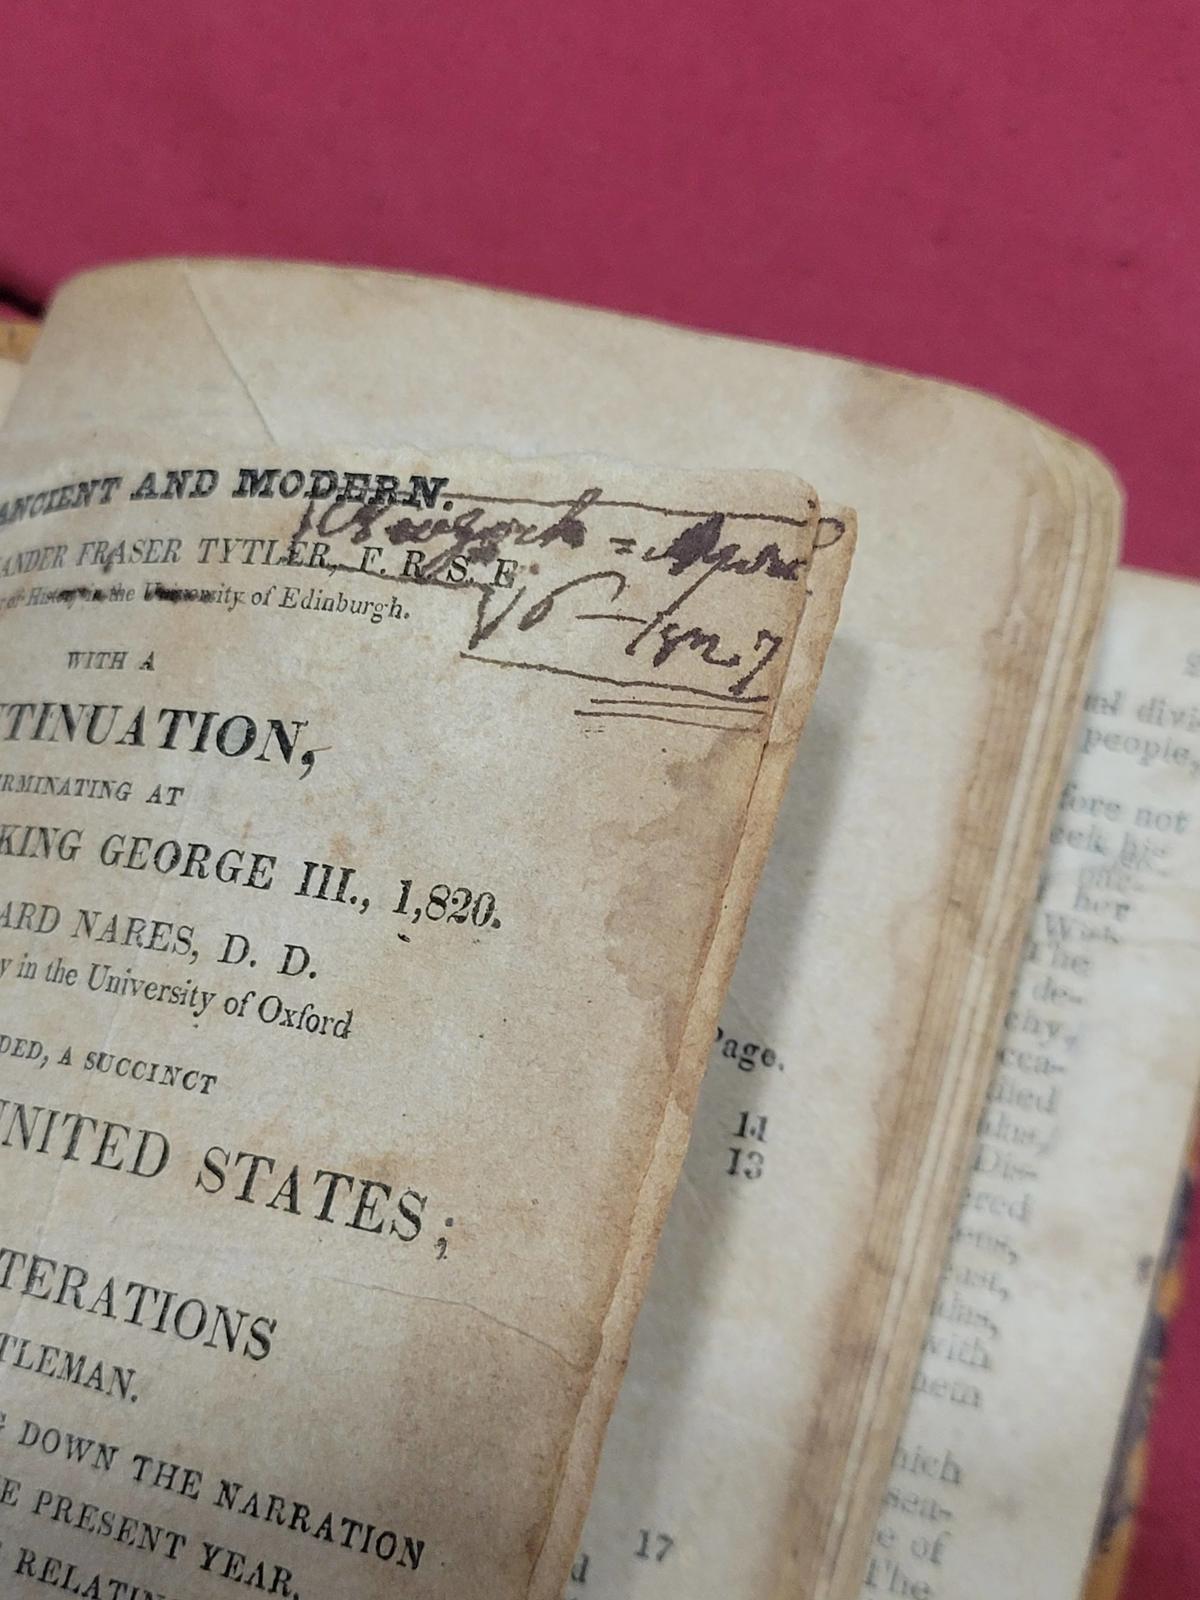 ANCIENT AND MODERN.
ANDER FRASER TYTLER, F. R. S. E
History in the University of Edinburgh.
WITH A
TINUATION,
RMINATING AT
KING GEORGE III., 1,820.
ARD NARES, D. D.
y in the University of Oxford
DED, A SUCCINCT
UNITED STATES;
TERATIONS
TLEMAN.
G DOWN THE NARRATION
E PRESENT YEAR.
RELATIN
Page.
11
13
17
d
nd divi
people,
fore not
her
With
The
de-
chy,
cca-
Dis-
ered
east,
with
hem
hich
sea-
e of
The